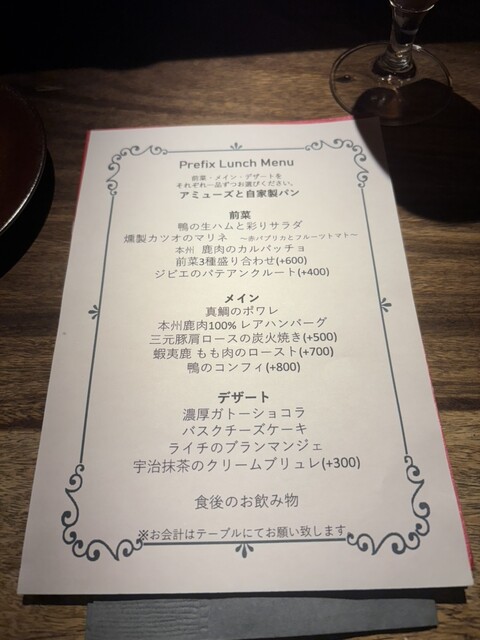 Prefix Lunch Menu
前菜・メイン・デザートを
それぞれ一品ずつお選びください。
アミューズと自家製パン
前菜
鴨の生ハムと彩りサラダ
燻製カツオのマリネ ～赤パプリカとフルーツトマト～
本州 鹿肉のカルパッチョ
前菜3種盛り合わせ(+600)
ジビエのパテアンクルート(+400)
メイン
真鯛のポワレ
本州鹿肉100% レアハンバーグ
三元豚肩ロースの炭火焼き(+500)
蝦夷鹿 もも肉のロースト(+700)
鴨のコンフィ(+800)
デザート
濃厚ガトーショコラ
バスクチーズケーキ
ライチのブランマンジェ
宇治抹茶のクリームブリュレ(+300)
食後のお飲み物
※お会計はテーブルにてお願い致します